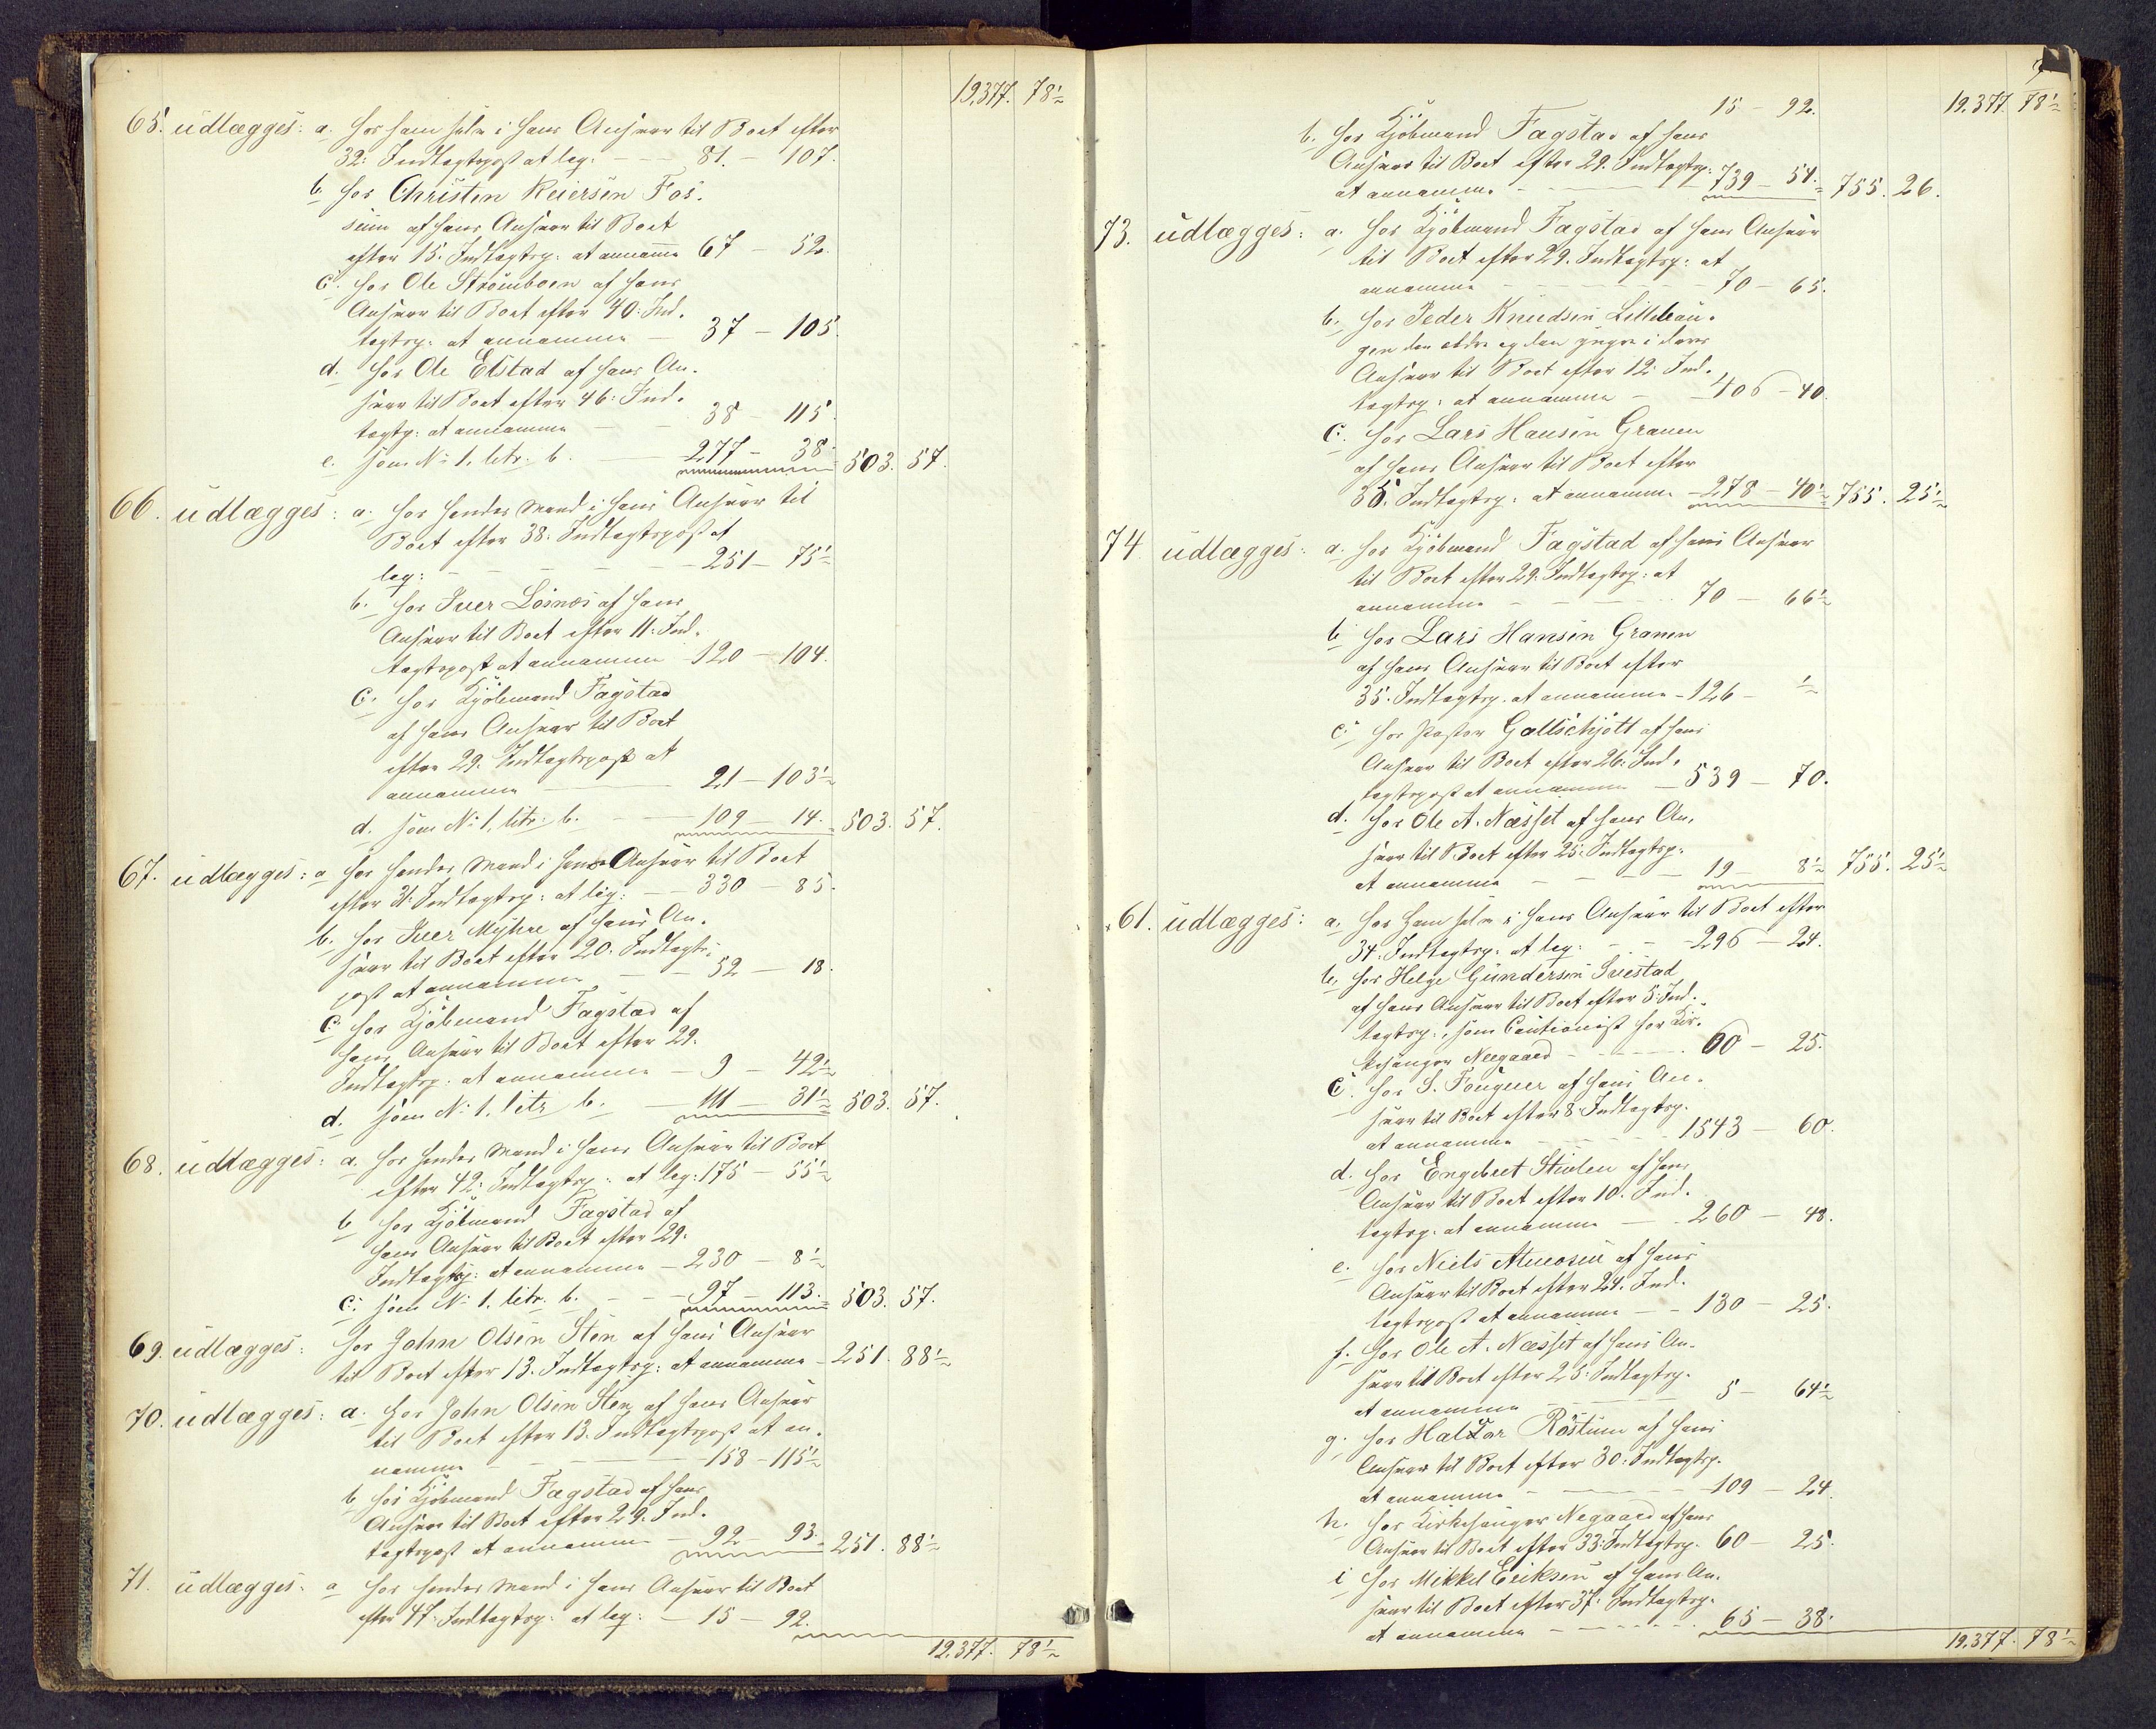 19,377. 78½
65. udlægges: a. hos ham selv i hans Ansvar til Boet efter
32: Indtægtspost at læg: — — 81. — 107.
b. hos Christen Reiersen Fos-
sum af hans Ansvar til Boet
efter 15. Indtægtsp: at annamme 67 — 52.
c. hos Ole Strömboen af hans
Ansvar til Boet efter 40: Ind-
tægtsp: at annamme — 37 — 105.
d. hos Ole Elstad af hans An-
svar til Boet efter 46: Ind-
tægtp: at annamme — — 38 — 115.
e. som No 1. litr. b. — 277 — 38. 503. 57.
66. udlægges: a. hos hendes Mand i hans Ansvar til
Boet efter 38: Indtægtspost at
læg: — — — 251 — 75½
b. hos Iver Lösnæs af hans
Ansvar til Boet efter 11: Ind-
tægtspost at annamme — 120 — 104.
c. hos Kjöbmand Fagstad
af hans Ansvar til Boet
efter 29. Indtægtspost at
annamme — 21 — 103½
d. som No 1. litr. b. — — 109 — 14. 503. 57.
67. udlægges: a hos hendes Mand i hans Ansvar til Boet
efter 31: Indtægtsp: at læg: — — 330 — 85.
b. hos Iver Myhre af hans An-
svar til Boet efter 20. Indtægts-
post at annamme — — 52 — 18.
c. hos Kjöbmand Fagstad af
hans Ansvar til Boet efter 29.
Indtægtsp: at annamme — 9 — 42½
d. som No 1. litr b. — 111 — 31½ 503. 57.
68. udlægges: a. hos hendes Mand i hans Ansvar til Boet
efter 42: Indtægtsp: at læg: 175 — 55½
b. hos Kjöbmand Fagstad af
hans Ansvar til Boet efter 29.
Indtægtsp: at annamme — 230 — 8½
c. som No 1. litr. b. — — 97 — 113. 503. 57.
69. udlægges: hos John Olsen Sten af hans Ansvar
til Boet efter 13. Indtægtsp: at annamme — 251. 88½
70. udlægges: a. hos John Olsen Sten af hans Ansvar
til Boet efter 13. Indtægtspost at an-
namme — — — 158 — 115½
b. hos Kjöbmand Fagstad af hans
Ansvar til Boet efter 29. Ind-
tægtspost at annamme — 92 — 93. 251. 88½
71. udlægges: a hos hendes Mand i hans Ansvar til Boet
efter 47: Indtægtsp: at læg: — 15 — 92.
19,377. 78½
15 — 92. 19,377. 78½
b. hos Kjöbmand Fagstad af hans
Ansvar til Boet efter 29. Indtægtsp:
at annamme — — 739 — 54. 755. 26.
73. udlægges: a. hos Kjöbmand Fagstad af hans Ansvar
til Boet efter 29. Indtægtsp: at
annamme — — — 70 — 65.
b. hos Peder Knudsen Lillehau-
gen den ældre og den yngre i deres
Ansvar til Boet efter 12: Ind-
tægtsp: at annamme — 406 — 40.
c. hos Lars Hansen Granen
af hans Ansvar til Boet efter
35. Indtægtsp: at annamme — 278 — 40½ 755. 25½
74. udlægges: a. hos Kjöbmand Fagstad af hans Ansvar
til Boet efter 29. Indtægtsp: at
annamme — — — 70 — 66½
b. hos Lars Hansen Granen
af hans Ansvar til Boet efter
35. Indtægtsp. at annamme — 126 — ½
c. hos Pastor Gottschjött af hans
Ansvar til Boet efter 26: Ind-
tægtspost at annamme — 539 — 70.
d. hos Ole A. Næsset af hans An-
svar til Boet efter 25: Indtægtsp.
at annamme — — — 19 — 8½ 755. 25½
61. udlægges: a. hos ham selv i hans Ansvar til Boet efter
34. Indtægtsp: at læg: — — 296 — 24.
b. hos Helge Gundersen
af hans Ansvar til Boet efter 5. Ind-
tægtsp:, som Cautionist for Kir-
kesanger Neegaard — — — 60 — 25.
c. hos S. Fougner af hans An-
svar til Boet efter 8. Indtægtsp.
at annamme — — — 1543 — 60.
d. hos Engebret Stulen af hans
Ansvar til Boet efter 10. Ind-
tægtsp. at annamme — 260 — 48.
e. hos Niels Amosen af hans
Ansvar til Boet efter 24. Ind-
tægtspost at annamme — — 130 — 25.
f. hos Ole A. Næsset af hans An-
svar til Boet efter 25: Indtægtsp.
at annamme — — 5 — 64½
g. hos Haldor Röstum af hans
Ansvar til Boet efter 30: Indtægtsp.
at annamme — — 109 — 24.
h. hos Kirkesanger Negaard af hans
Ansvar til Boet efter 33: Indtægtsp. 60 — 25.
i hos Mikkel Eriksen af hans An-
svar til Boet efter 37. Indtægtsp.
at annamme — — — 65 — 38.
19,377. 78½